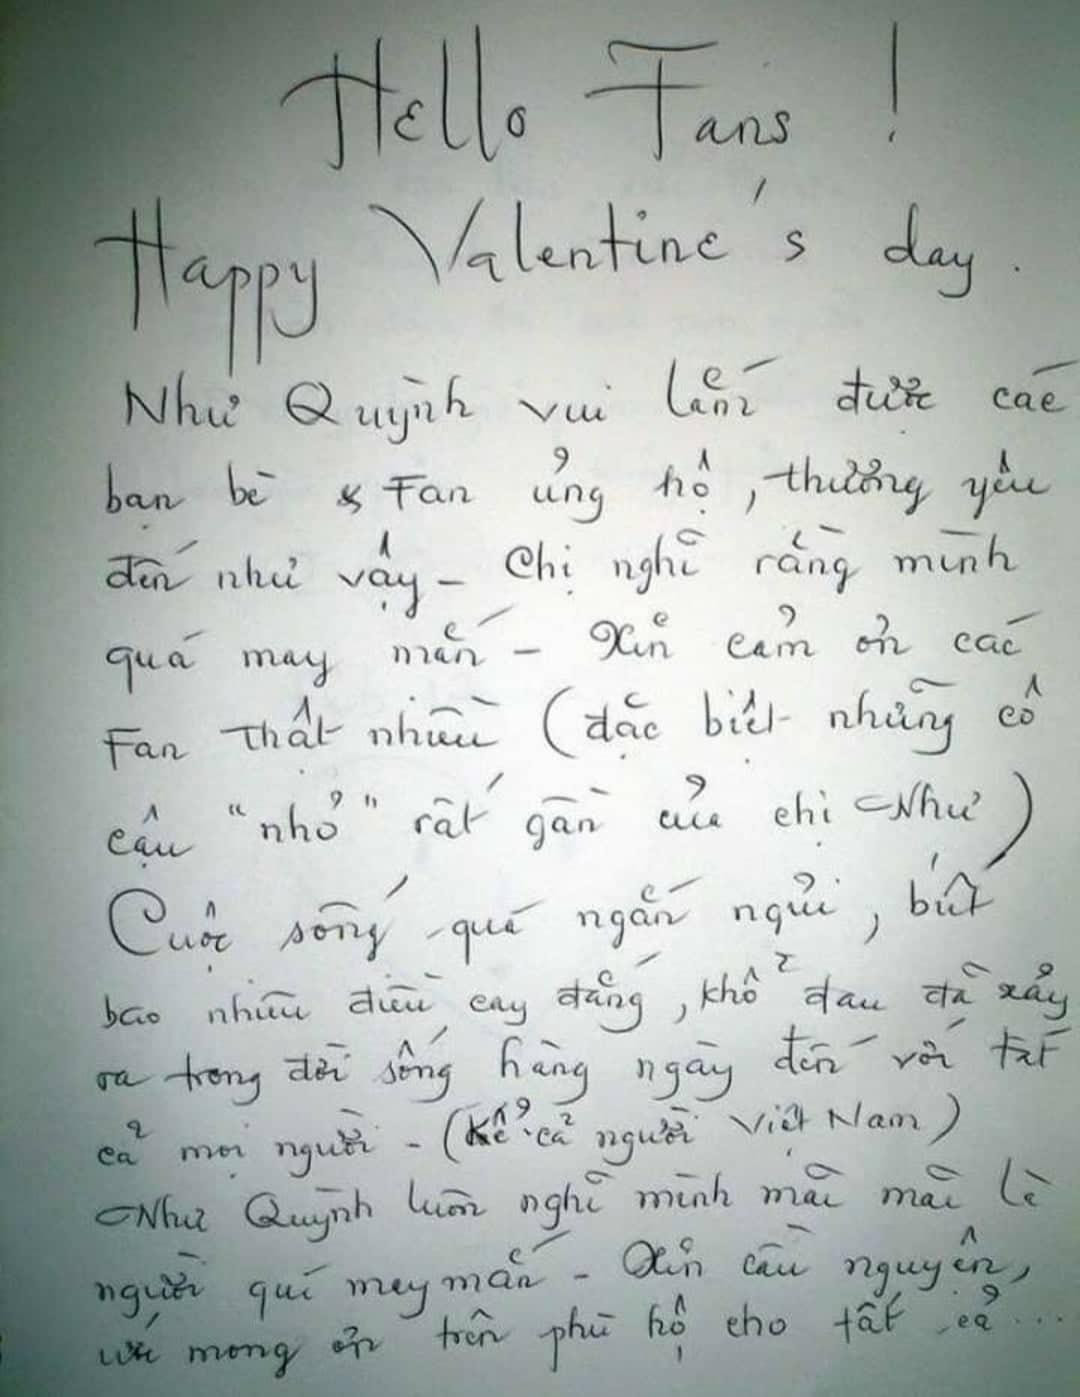 Hello Fans !
Happy Valentine's day.
Như Quỳnh vui lắm được các
bạn bè & Fan ủng hộ, thương yêu
đến như vậy - Chị nghĩ rằng mình
quá may mắn - Xin cảm ơn các
Fan thật nhiều (đặc biệt những cô
cậu "nhỏ" rất gần của chị Như)
Cuộc sống quá ngắn ngủi, biết
bao nhiêu điều cay đắng, khổ đau đã xảy
ra trong đời sống hàng ngày đến với tất
cả mọi người - (Kể cả người Việt Nam)
Như Quỳnh luôn nghĩ mình mãi mãi là
người quá may mắn - Xin cầu nguyện,
ước mong ơn trên phù hộ cho tất cả...